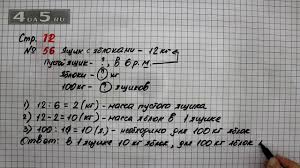 Стр. 12
№ 56 Ящик с яблоками – 12 кг
Пустой ящик – ?, в 6 р. м
Яблоки – ? кг
100 кг – ? ящиков
1) 12 : 6 = 2 (кг) – масса пустого ящика
2) 12 – 2 = 10 (кг) – масса яблок в 1 ящике
3) 100 : 10 = 10 (я) – необходимо для 100 кг яблок
Ответ: в 1 ящике 10 кг яблок, для 100 кг яблок